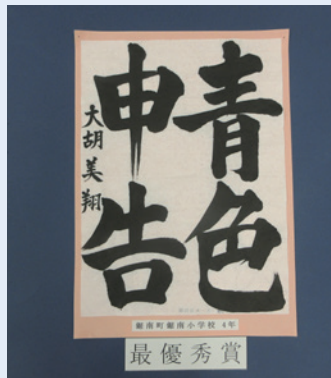 青色
申告
大胡美翔
鋸南町鋸南小学校 4年
最優秀賞